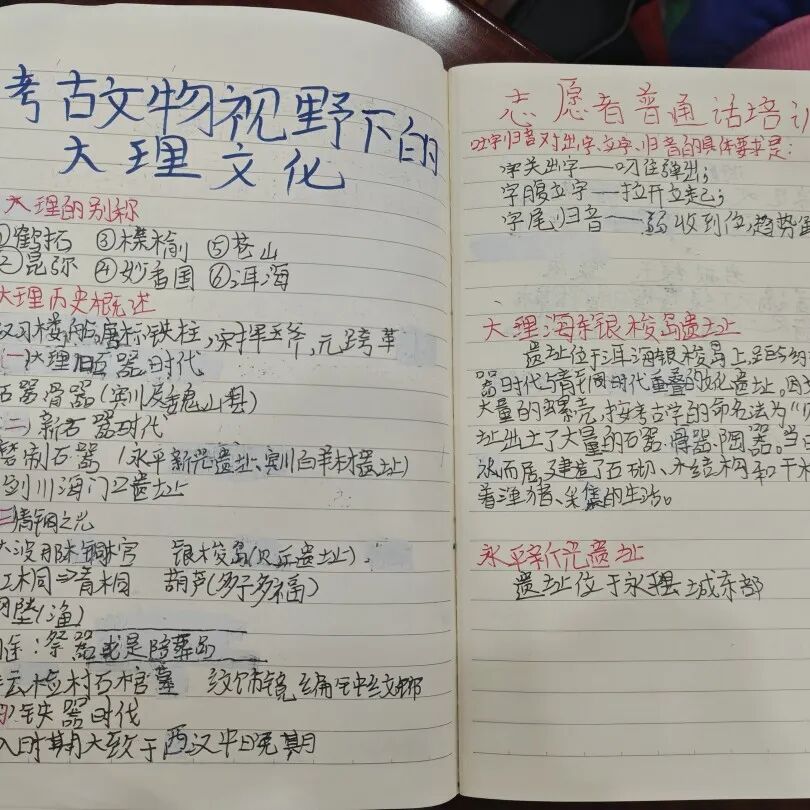 考古文物视野下的
大理文化
大理的别称
①鹤拓 ③楪榆 ⑤苍山
②昆弥 ④妙香国 ⑥洱海
大理历史概述
汉习楼船,唐标铁柱,宋挥玉斧,元跨革
(一)大理旧石器时代
石器骨器(宾川及巍山县)
(二)新石器时代
磨制石器(永平新光遗址、宾川白羊村遗址)
剑川海门口遗址
青铜之光
大波那木铜棺 银梭岛(贝丘遗址)
红铜⇒青铜 葫芦(多子多福)
(渔)
途:祭器或是陪葬品
检村石棺墓 纹饰
铁器时代
入时期大致于西汉中晚期
志愿者普通话培训
吐字归音对出字、立字、归音的具体要求是:
字头出字——叼住弹出;
字腹立字——拉开立起;
字尾归音——弱收到位,趋势
大理海东银梭岛遗址
遗址位于洱海银梭岛上,距今约
器时代与青铜时代重叠的文化遗址。因
大量的螺壳,按考古学的命名法为“贝
址出土了大量的石器、骨器、陶器。当
水而居,建造了石砌、木结构和干
着渔猎、采集的生活。
永平新光遗址
遗址位于永平县城东部